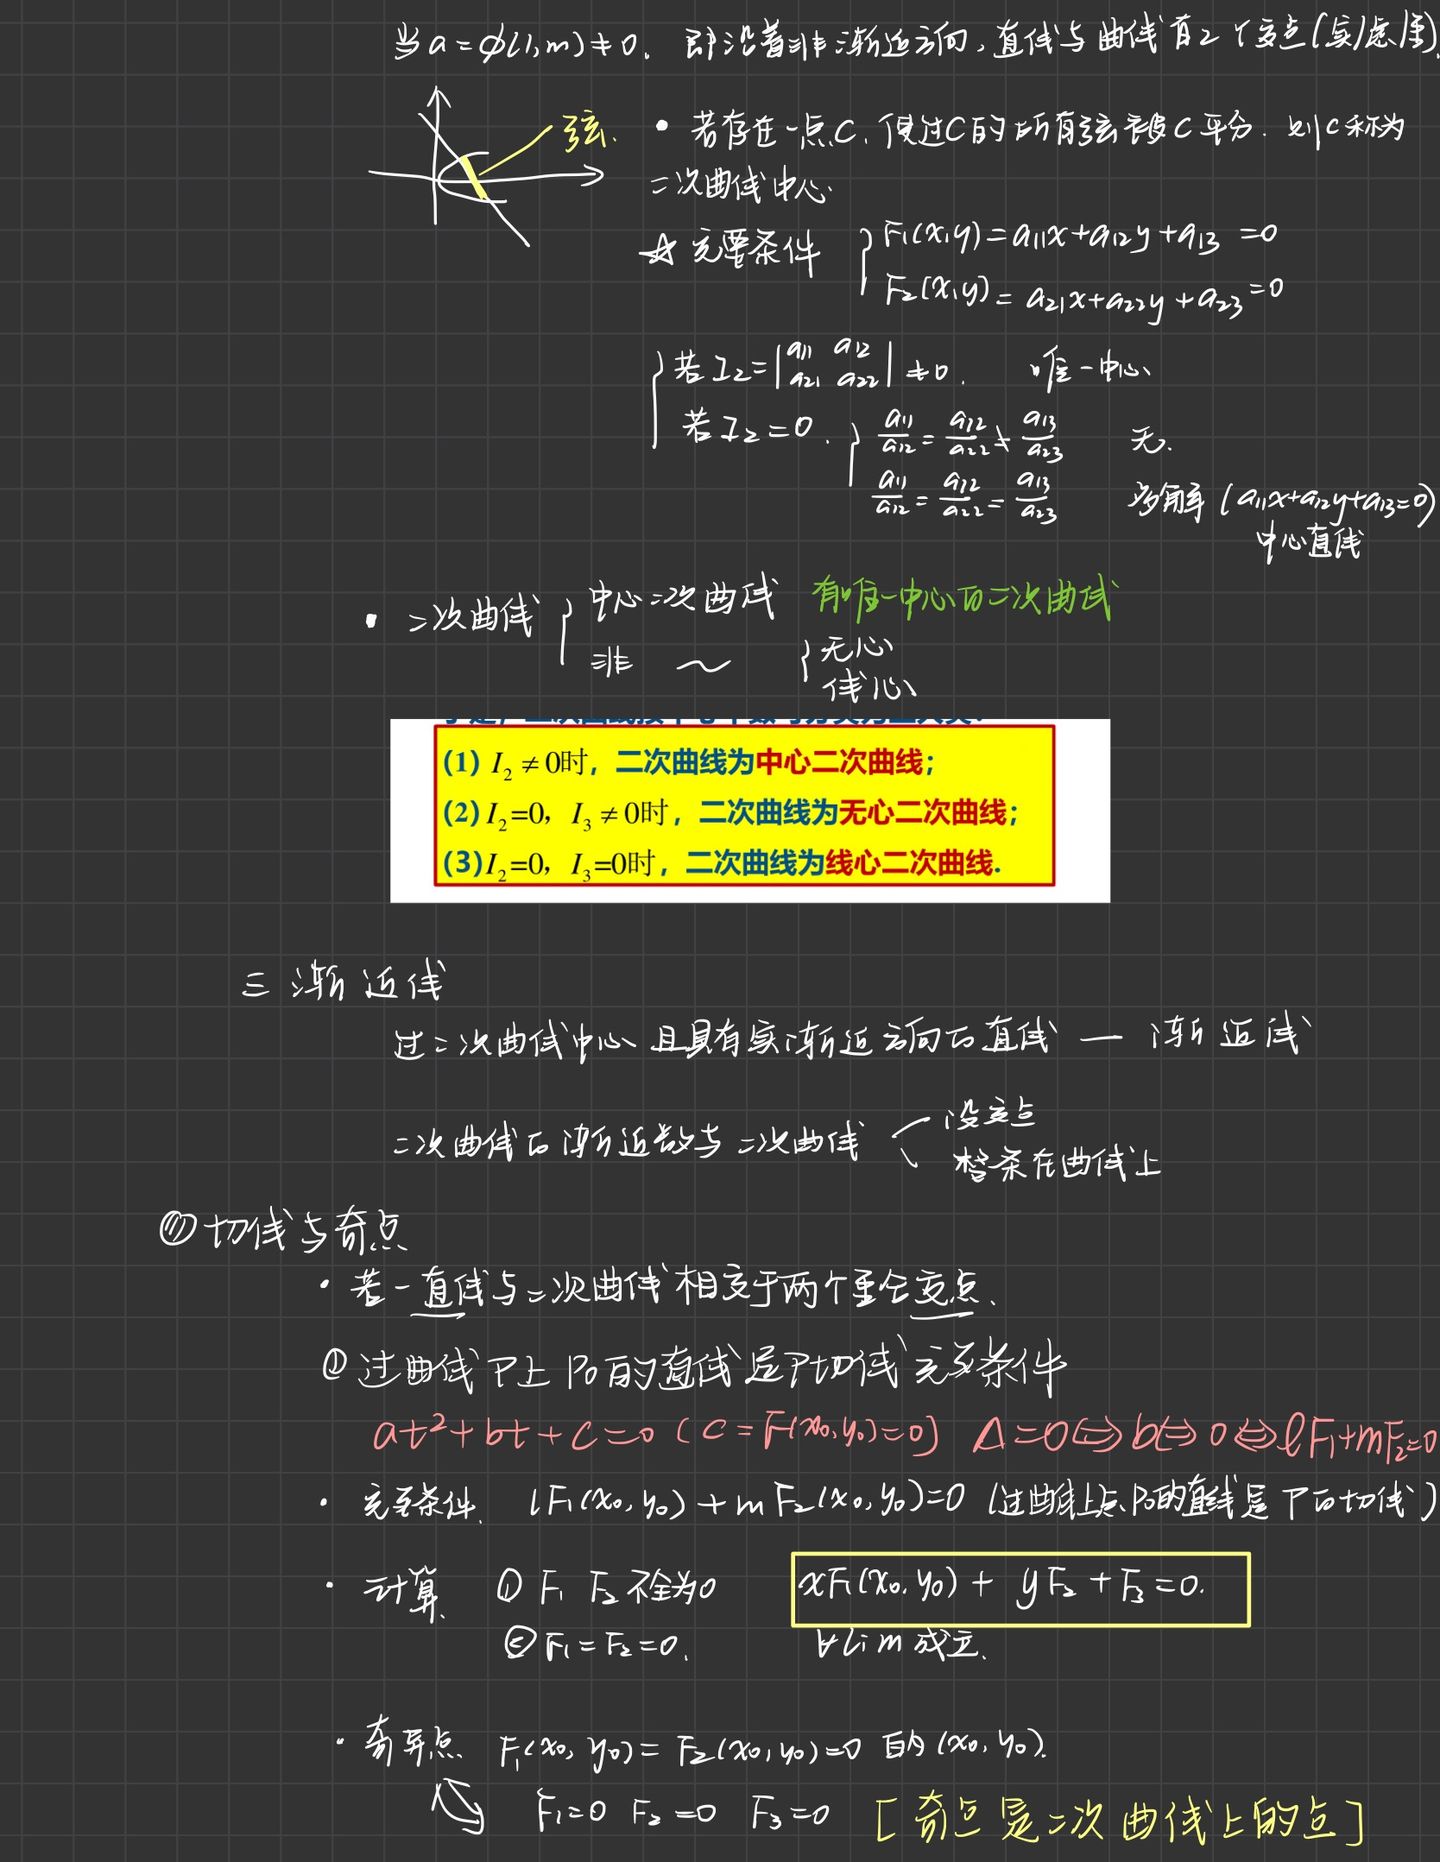 当 a = φ(l,m) ≠ 0. 即沿着非渐近方向, 直线与曲线有2个交点(实/虚/重)
弦.
• 若存在一点C, 使过C的所有弦被C平分. 则C称为
二次曲线中心.
☆ 充要条件 { F₁(x,y) = a₁₁x + a₁₂y + a₁₃ = 0
F₂(x,y) = a₂₁x + a₂₂y + a₂₃ = 0
{ 若 I₂ = |a₁₁ a₁₂ a₂₁ a₂₂| ≠ 0. 唯一中心
若 I₂ = 0. { a₁₁/a₁₂ = a₁₂/a₂₂ ≠ a₁₃/a₂₃ 无.
a₁₁/a₁₂ = a₁₂/a₂₂ = a₁₃/a₂₃ 多解 (a₁₁x+a₁₂y+a₁₃=0)
中心直线
• 二次曲线 { 中心二次曲线 有唯一中心的二次曲线
非 ~ { 无心
线心
(1) I₂ ≠ 0时，二次曲线为中心二次曲线；
(2) I₂=0，I₃ ≠ 0时，二次曲线为无心二次曲线；
(3) I₂=0，I₃=0时，二次曲线为线心二次曲线.
三 渐近线
过二次曲线中心且具有实渐近方向的直线 — 渐近线
二次曲线的渐近线与二次曲线 没交点
整条在曲线上
切线与奇点
• 若一直线与二次曲线相交于两个重合交点.
① 过曲线Γ上P₀的直线是Γ切线充要条件
at² + bt + c = 0 (c = F(x₀,y₀) = 0) Δ=0 ⇔ b ⇔ 0 ⇔ lF₁+mF₂=0
• 充要条件. lF₁(x₀, y₀) + mF₂(x₀, y₀) = 0 (过曲线上点P₀的直线是Γ的切线)
• 计算. ① F₁ F₂ 不全为0 xF₁(x₀, y₀) + yF₂ + F₃ = 0.
② F₁ = F₂ = 0. ∀l:m 成立.
• 奇异点 F₁(x₀, y₀) = F₂(x₀, y₀) = 0 的 (x₀, y₀).
F₁=0 F₂=0 F₃=0 [奇点是二次曲线上的点]